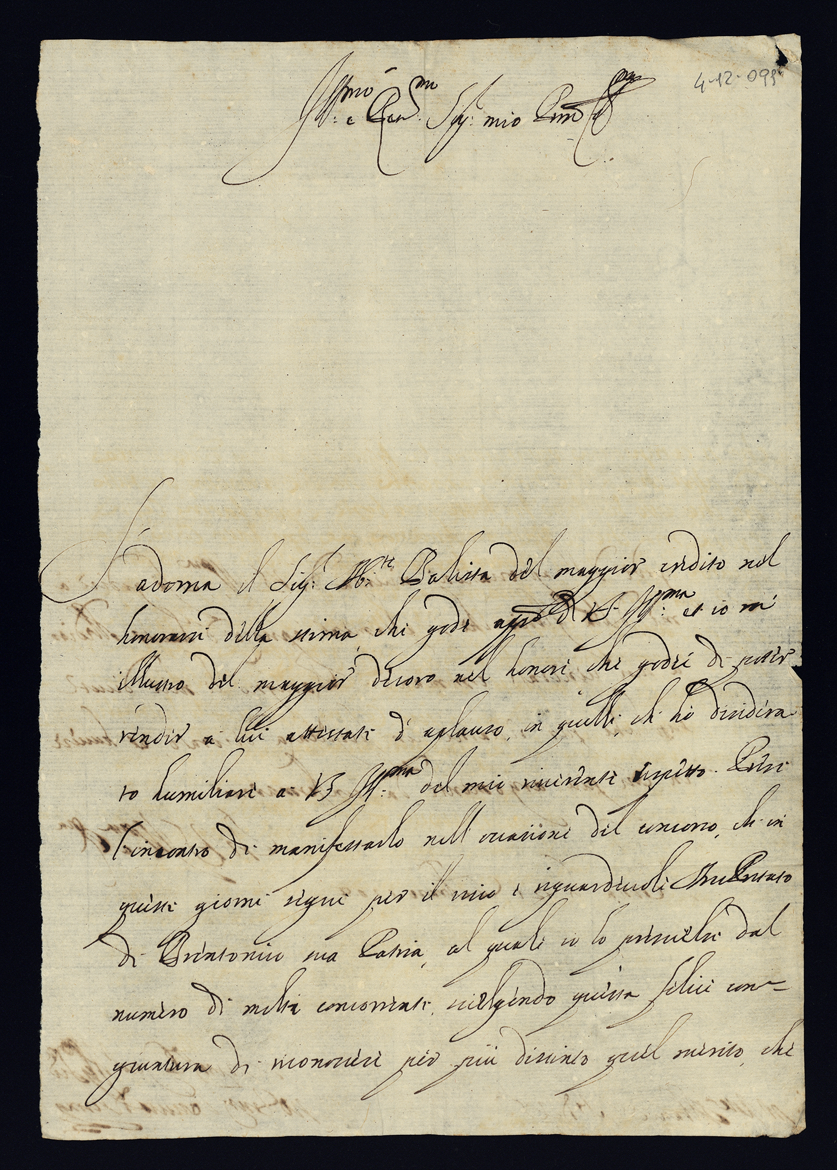 4-12-093
Ill.mo e Rev.mo Sig.r mio Pron
S'adorna il Sig.r Ab.te Balista del maggior credito nel
honorarsi della stima, che gode app.o di V. S. Ill.ma et io mi
illustro del maggior decoro nel honore che godei di poter
render a lui attestati d'aplauso, in quelli che hò desidera
to humiliare a V. S. Ill.ma del mio riverente rispetto. Presi
l'incontro di manifestarlo nell'occasione del concorso, che in
questi giorni seguì per il mio e riguardevole
di Brentonico sua Patria, al quale io lo prescielsi dal
numero di molti concorrenti, scielgendo questa felice con=
giuntura di riconoscere per più distinto quel merito, che